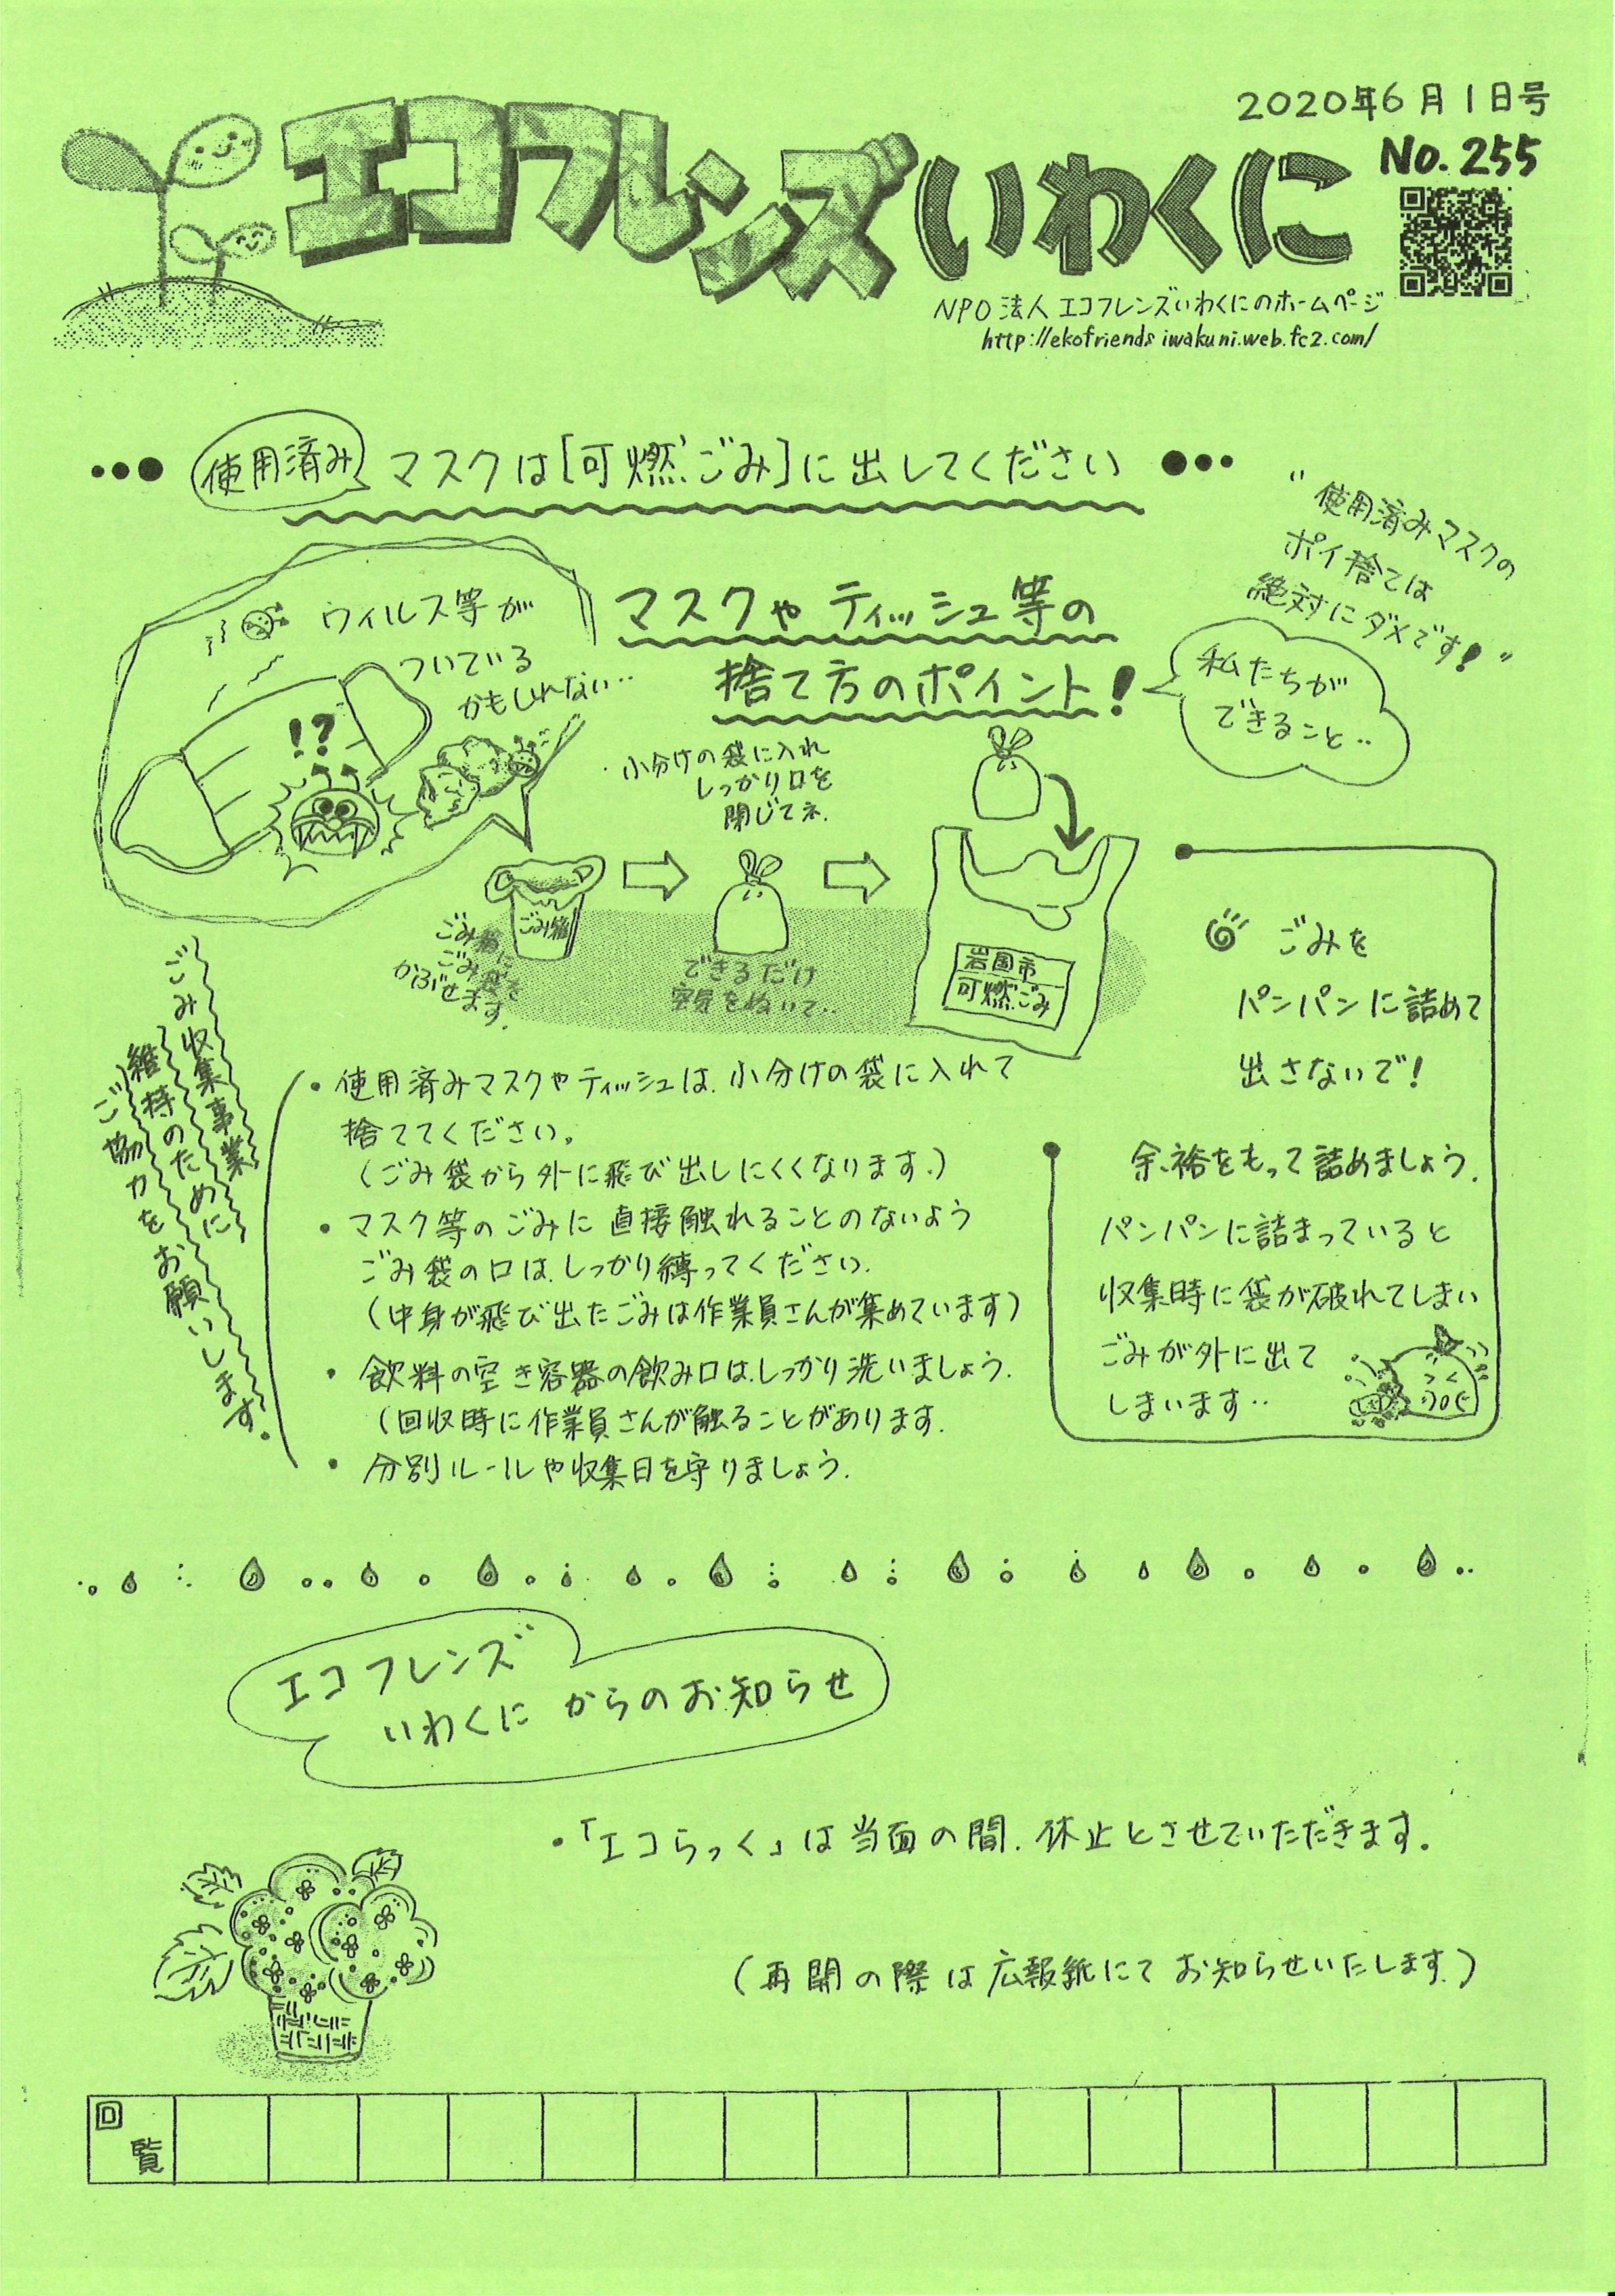 2020年6月1日号
No.255
エコフレンズいわくに
NPO法人 エコフレンズいわくにのホームページ
http://ekofriends iwakuni.web.fc2.com/
使用済み マスクは[可燃ごみ]に出してください
"使用済みマスクの
ポイ捨ては
絶対にダメです!"
ウィルス等が
ついている
かもしれない‥
!?
マスクや ティッシュ等の
捨て方のポイント!
私たちが
できること‥
小分けの袋に入れ
しっかり口を
閉じてネ.
ごみ箱
ごみ箱に
ごみ袋を
かぶせます.
できるだけ
空気をぬいて‥
岩国市
可燃ごみ
ごみを
パンパンに詰めて
出さないで!
余裕をもって詰めましょう.
パンパンに詰まっていると
収集時に袋が破れてしまい
ごみが外に出て
しまいます‥
ごみ収集事業
維持のために
ご協力をお願いします。
・使用済みマスクやティッシュは、小分けの袋に入れて
捨ててください。
(ごみ袋から外に飛び出しにくくなります.)
・マスク等のごみに 直接触れることのないよう
ごみ袋の口は、しっかり縛ってください.
(中身が飛び出たごみは作業員さんが集めています)
・飲料の空き容器の飲み口は、しっかり洗いましょう.
(回収時に作業員さんが触ることがあります.
・分別ルールや収集日を守りましょう.
エコフレンズ
いわくに からのお知らせ
・「エコらっく」は当面の間、休止とさせていただきます。
(再開の際は広報紙にて お知らせいたします.)
回覧